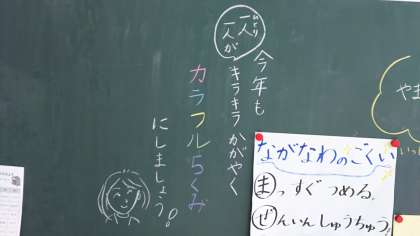 今年も
一人(ひとり)
一人が
キラキラかがやく
カラフル5くみ
にしましょう!
ながなわのごくい
ま っすぐつめる。
ぜ んいんしゅうちゅう。
やま